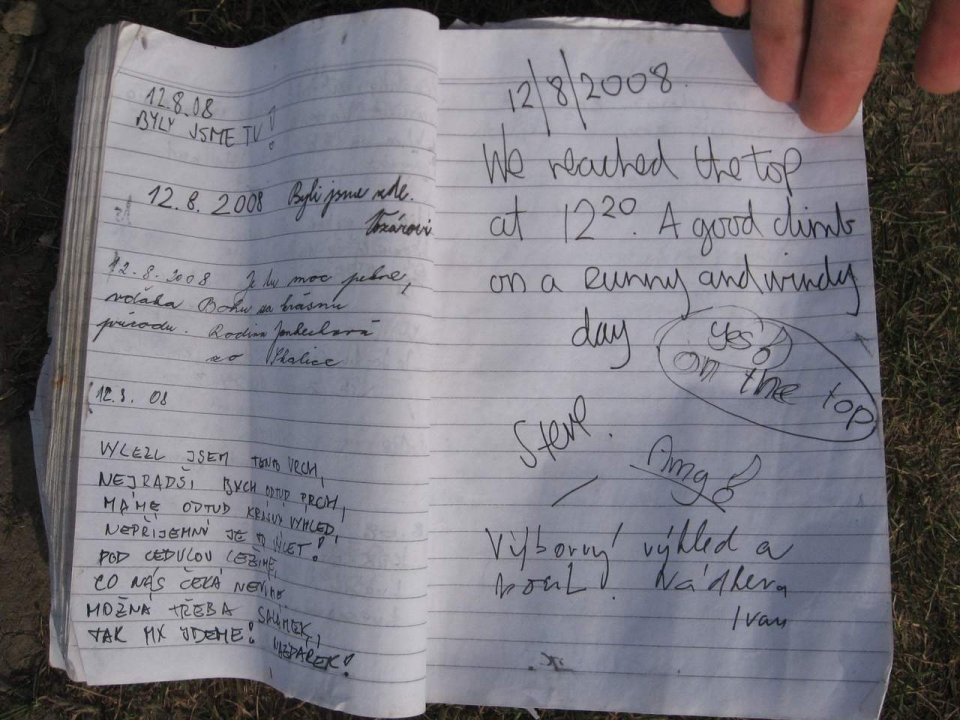 12.8.08
BYLY JSME TU!
12.8.2008 Byli jsme zde.
12.8.2008 Je tu moc pekne,
vďaka Bohu za krásnu
prírodu. Rodina
zo Skalice
12.8.08
VYLEZL JSEM TENTO VRCH,
NEJRADŠI BYCH ODTUD PRCH,
MÁME ODTUD KRÁSNÝ VÝHLED,
NEPŘÍJEMNÍ JE TO VÝLET!
POD CEDULOU LEŽÍME,
CO NÁS ČEKÁ NEVÍME
MOŽNÁ TŘEBA SALÁMEK,
TAK MY JDEME! NAZDÁREK!
12/8/2008.
We reached the top
at 12²⁰. A good climb
on a sunny and windy
day
yes!
on thee top
Steve.
Ang
Výborný výhled a
Nádhera
Ivan